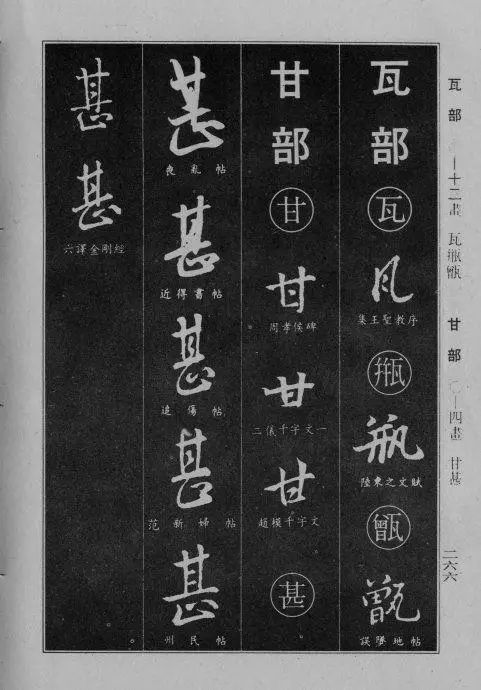 瓦部 —十二畫 瓦瓶甑 甘部 〇—四畫 甘甚
二六六
瓦部
瓦
瓦
集王聖教序
瓶
瓶
陸柬之文賦
甑
甑
誤墜地帖
甘部
甘
甘
周孝侯碑
甘
二儀千字文一
甘
趙模千字文
甚
甚
喪亂帖
甚
近得書帖
甚
追傷帖
甚
范新婦帖
甚
州民帖
甚
甚
六譯金剛經